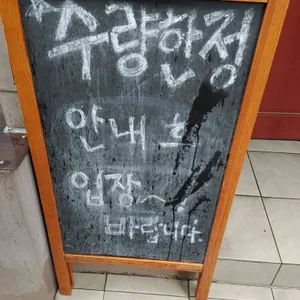 수량한정
안내 후
입장~!
바랍니다.